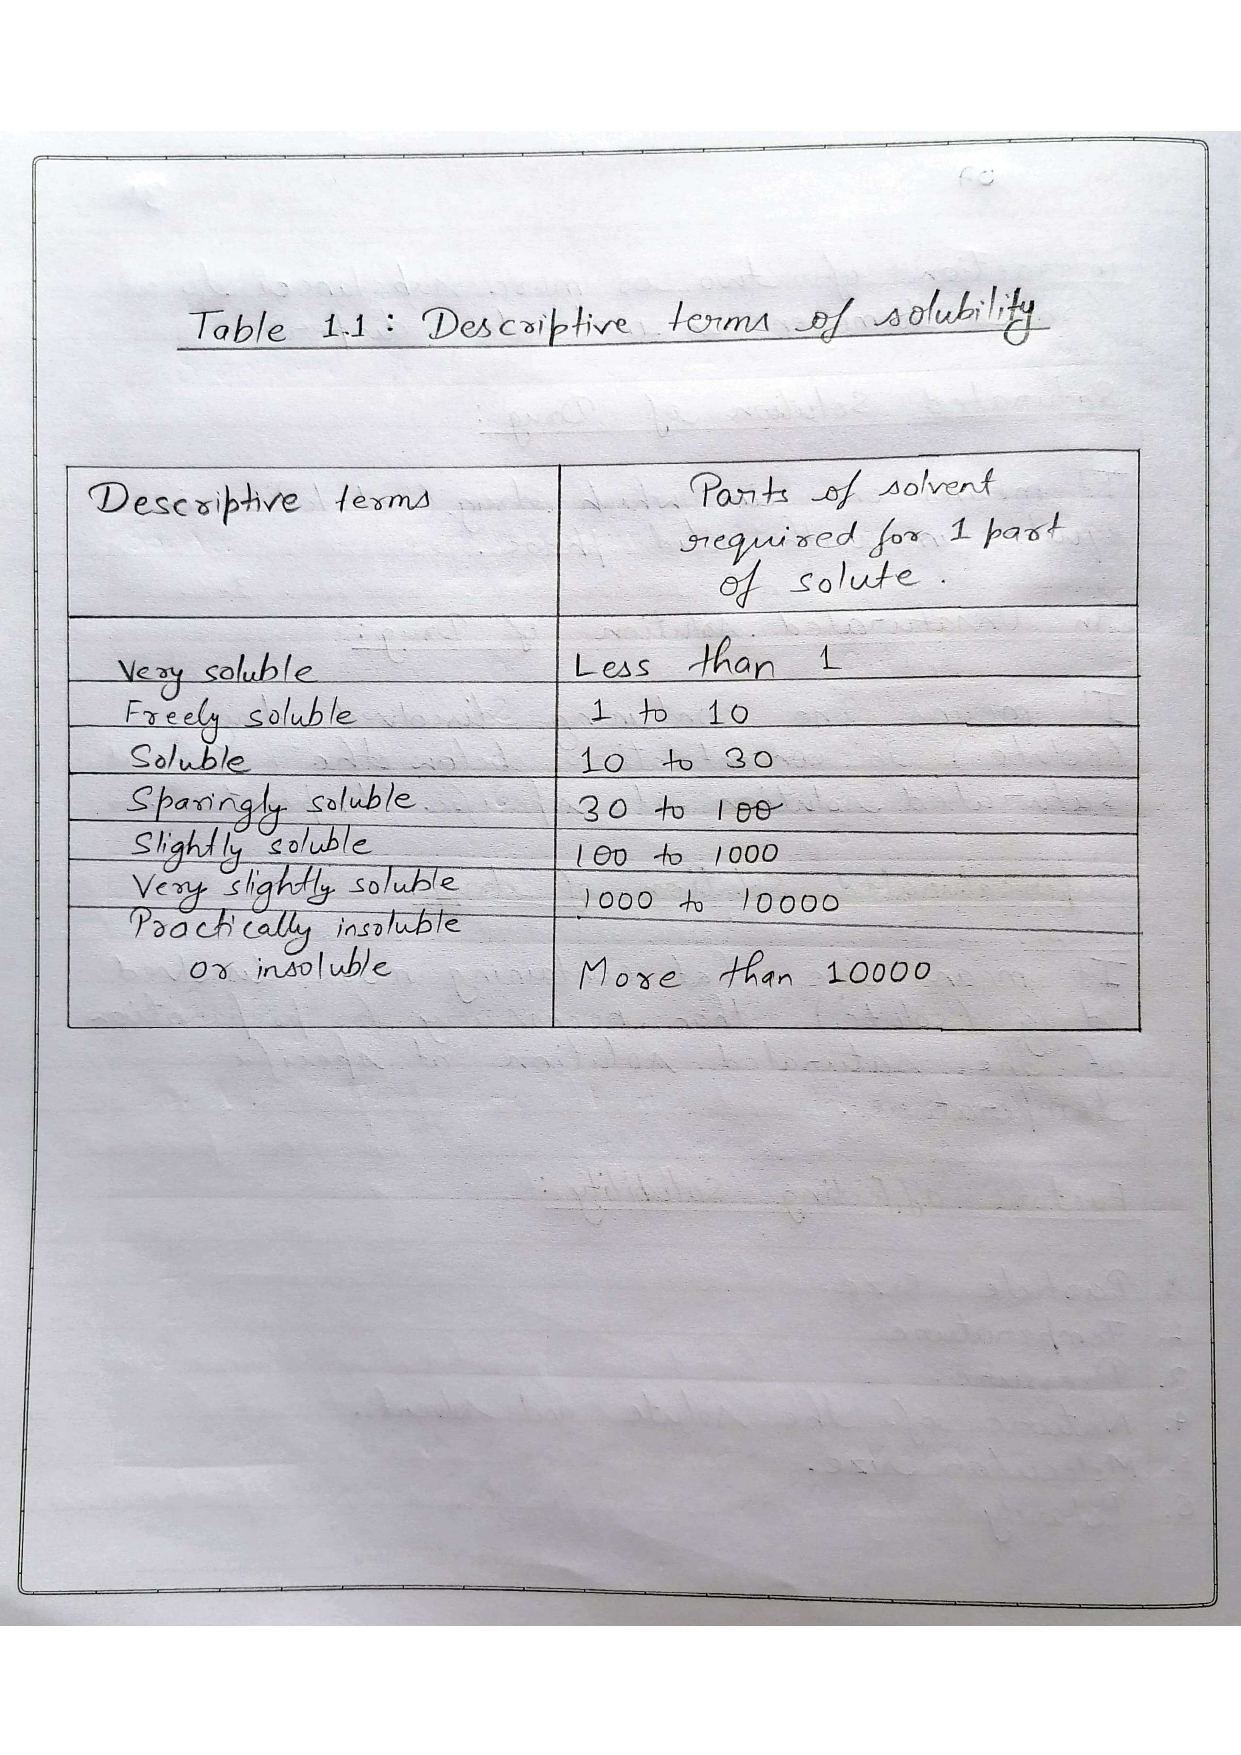 Table 1.1 : Descriptive terms of solubility
Descriptive terms
Parts of solvent
required for 1 part
of solute.
Very soluble Less than 1
Freely soluble 1 to 10
Soluble 10 to 30
Sparingly soluble. 30 to 100
Slightly soluble 100 to 1000
Very slightly soluble 1000 to 10000
Practically insoluble
or insoluble More than 10000